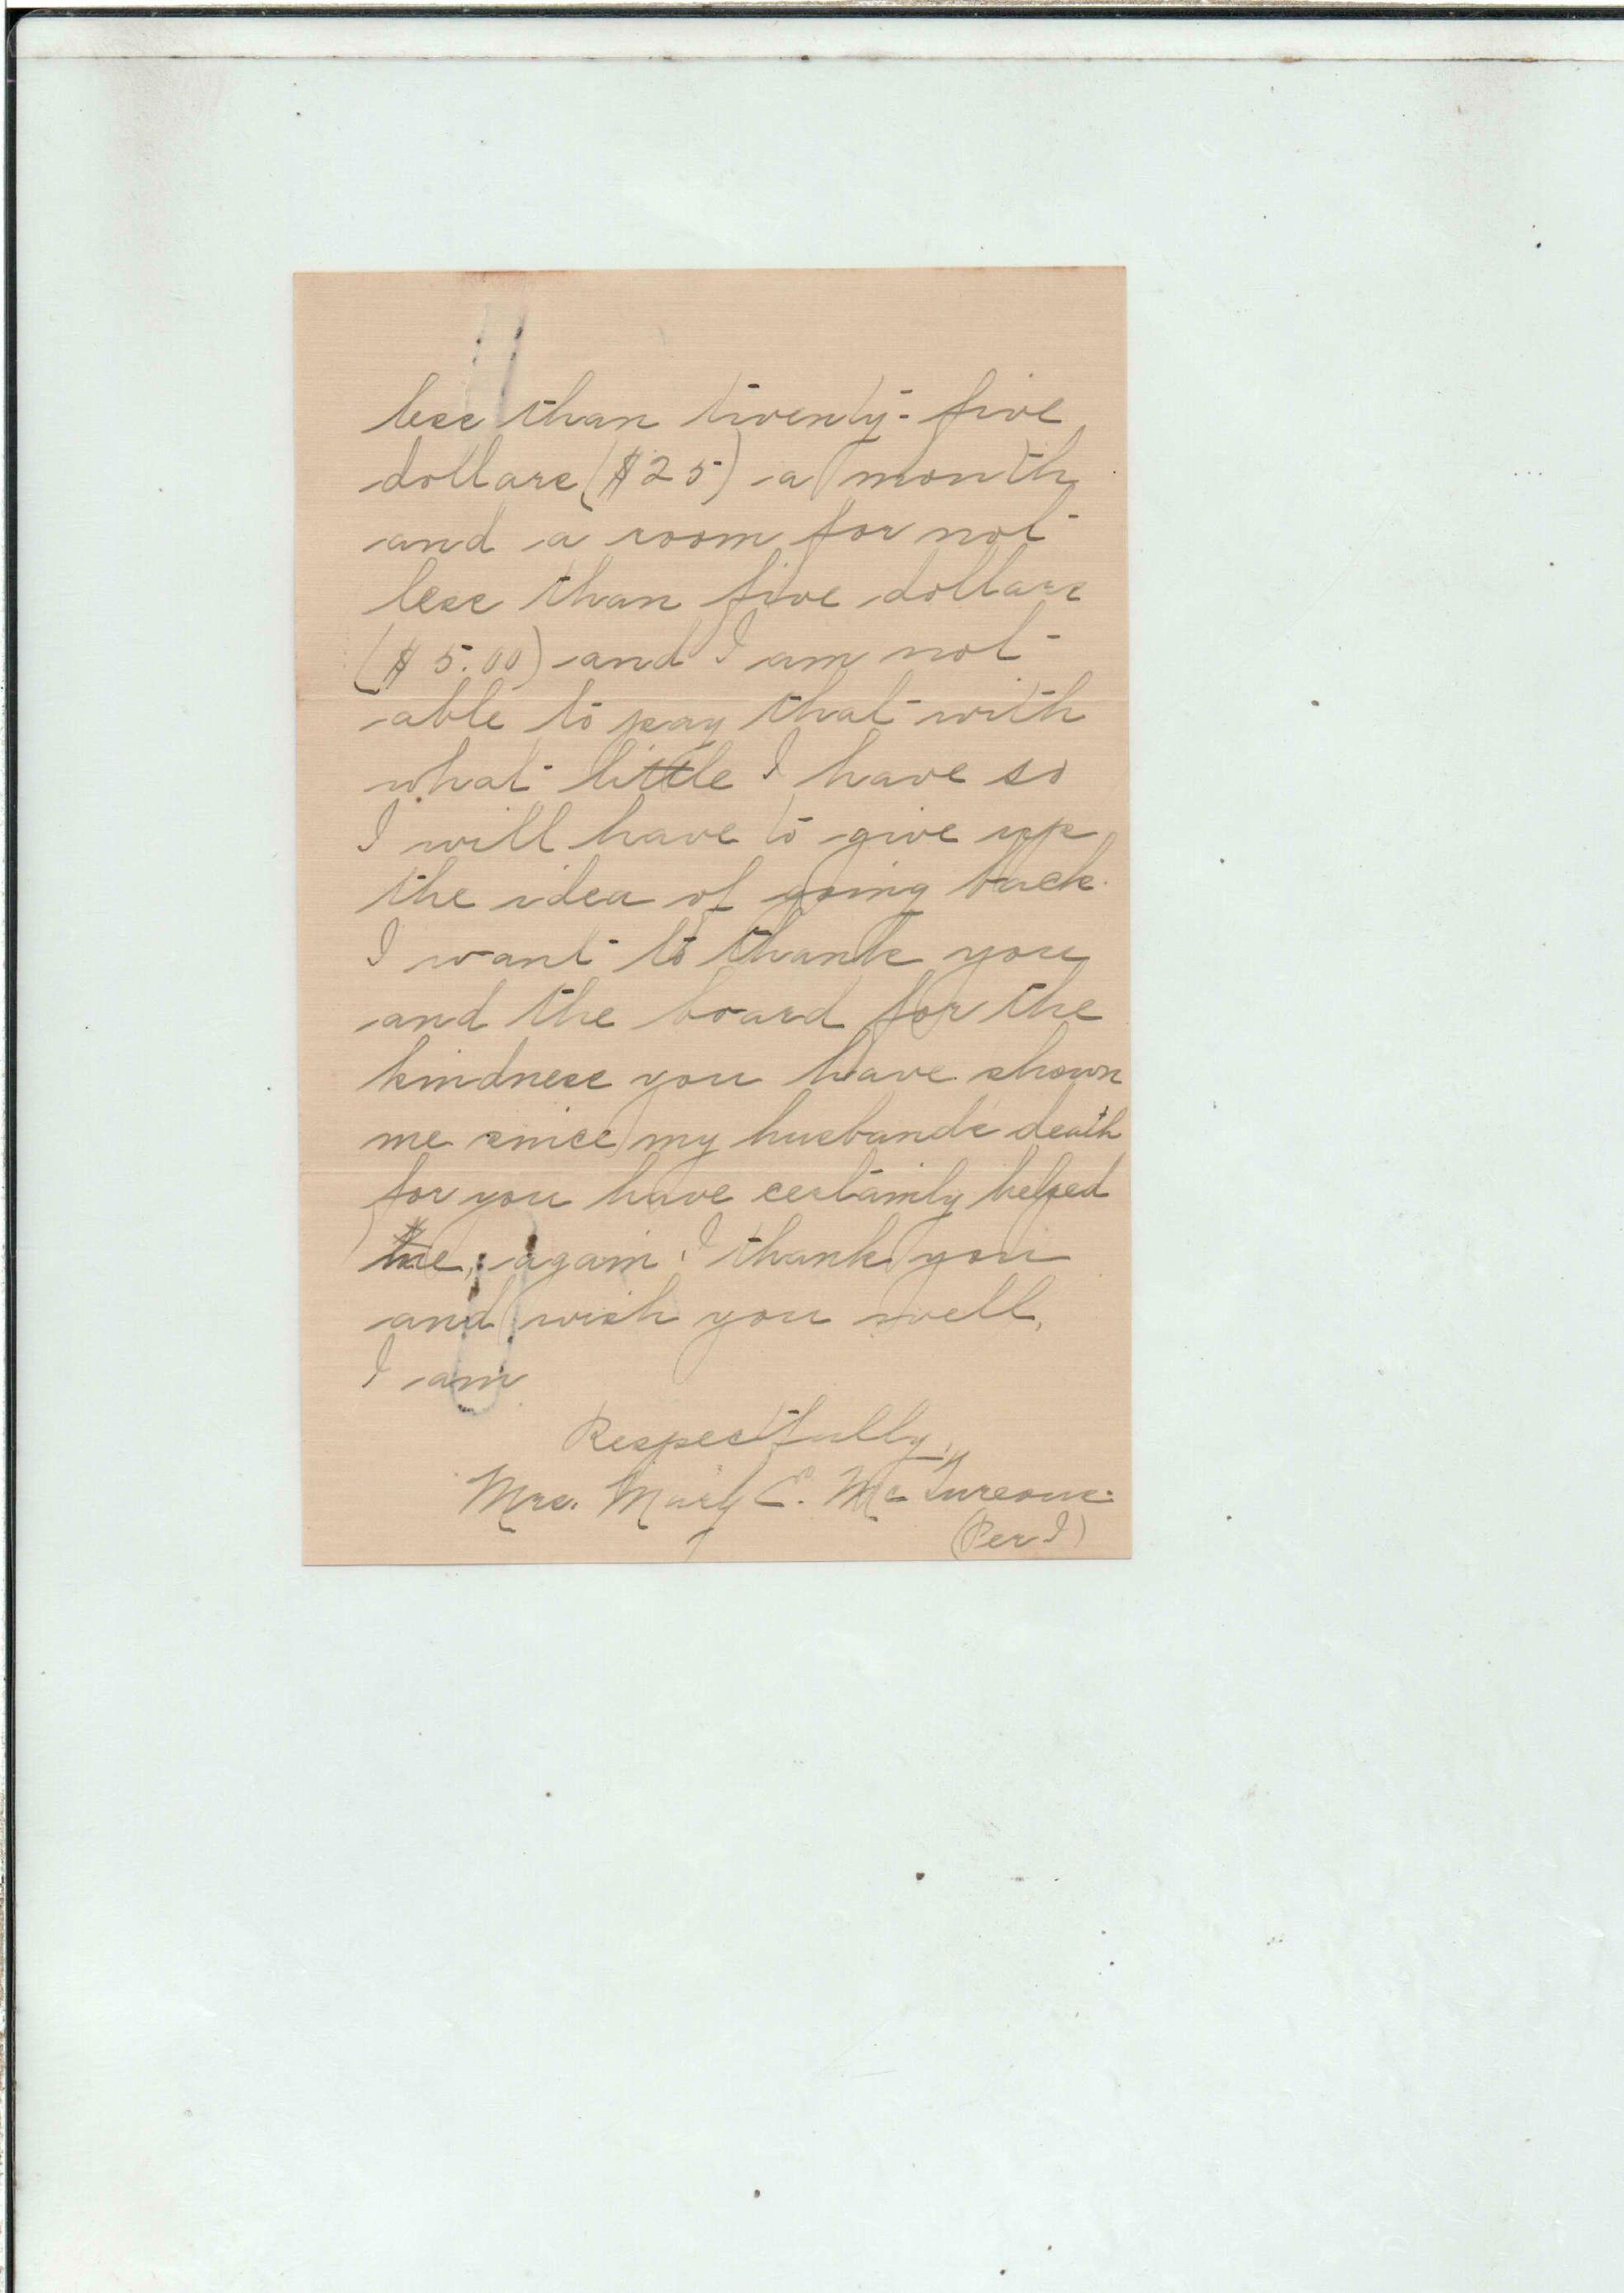 less than twenty-five
dollars ($25) a month
and a room for not
less than five dollars
($5.00) and I am not
able to pay that with
what little I have so
I will have to give up
the idea of going back.
I want to thank you
and the board for the
kindness you have shown
me since my husbands death
for you have certainly helped
me, again I thank you
and wish you well,
I am
Respectfully,
Mrs. Mary E. Mc
(Per I)